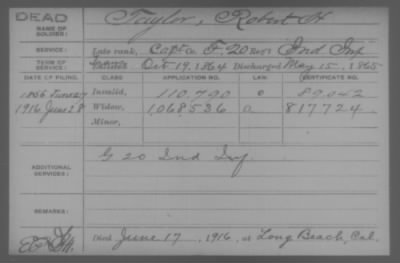 DEAD
NAME OF SOLDIER: Taylor, Robert H
SERVICE: Late rank, Capt Co. F 20 Reg't Ind Inf
TERM OF SERVICE: Oct 19, 1864 Discharged May 15, 1865
DATE OF FILING. CLASS. APPLICATION NO. LAW. CERTIFICATE NO.
1866 June 27 Invalid, 110,790 89,042
1916 June 28 Widow, 1,068,536 817724
Minor,
ADDITIONAL SERVICES: G 20 Ind Inf
REMARKS:
Died June 17, 1916, at Long Beach, Cal.